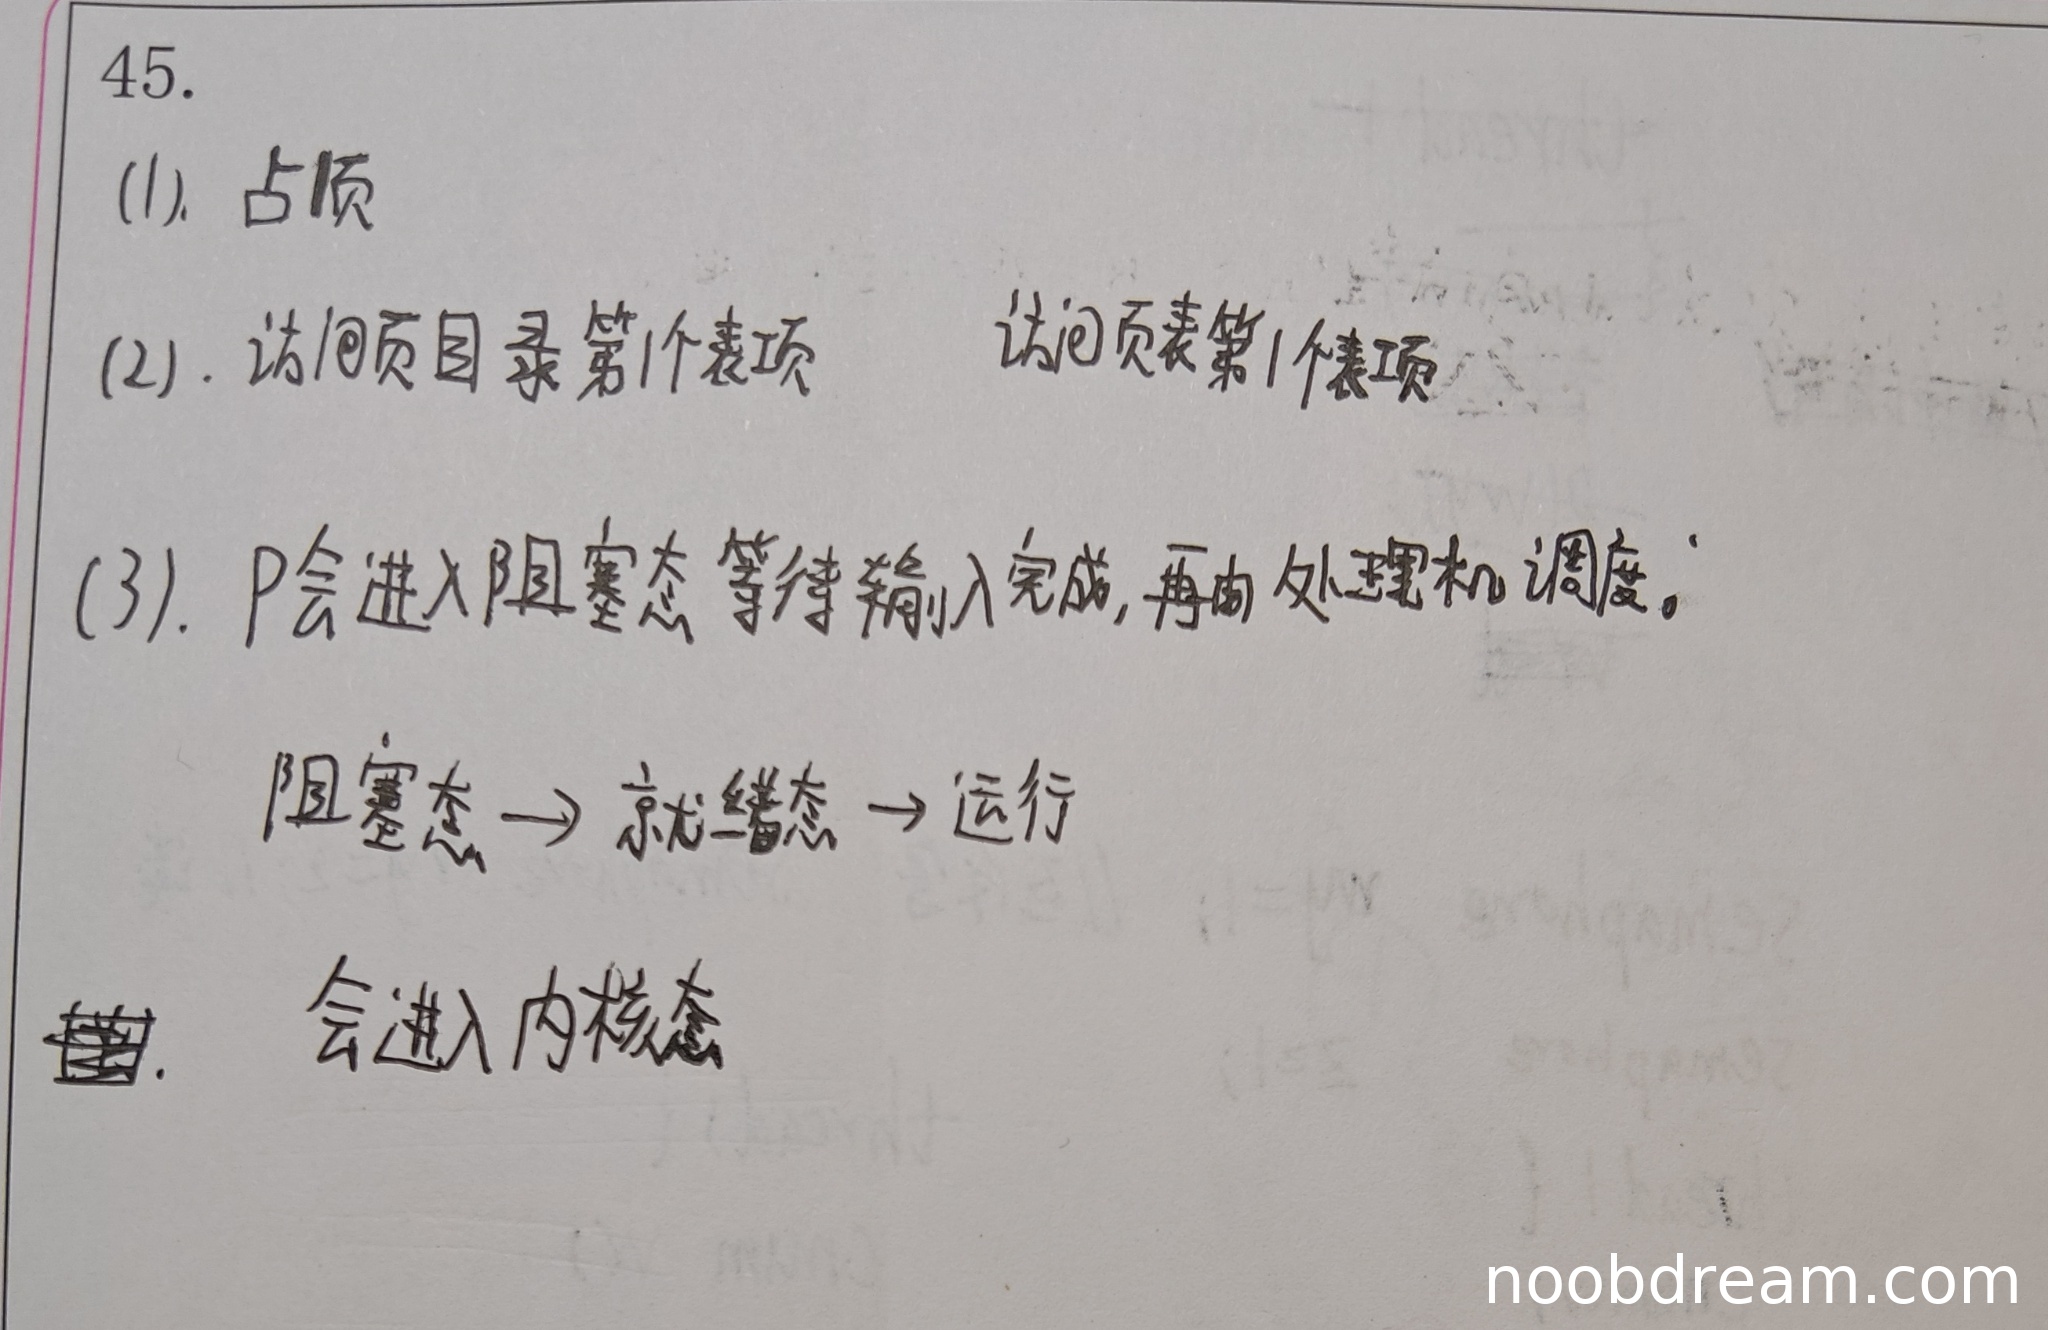 45.
(1). 占顶
(2). 访问页目录第1个表项 访问页表第1个表项
(3). P会进入阻塞态等待输入完成,再由处理机调度。
阻塞态→就绪态→运行
会进入内核态
noobdream.com